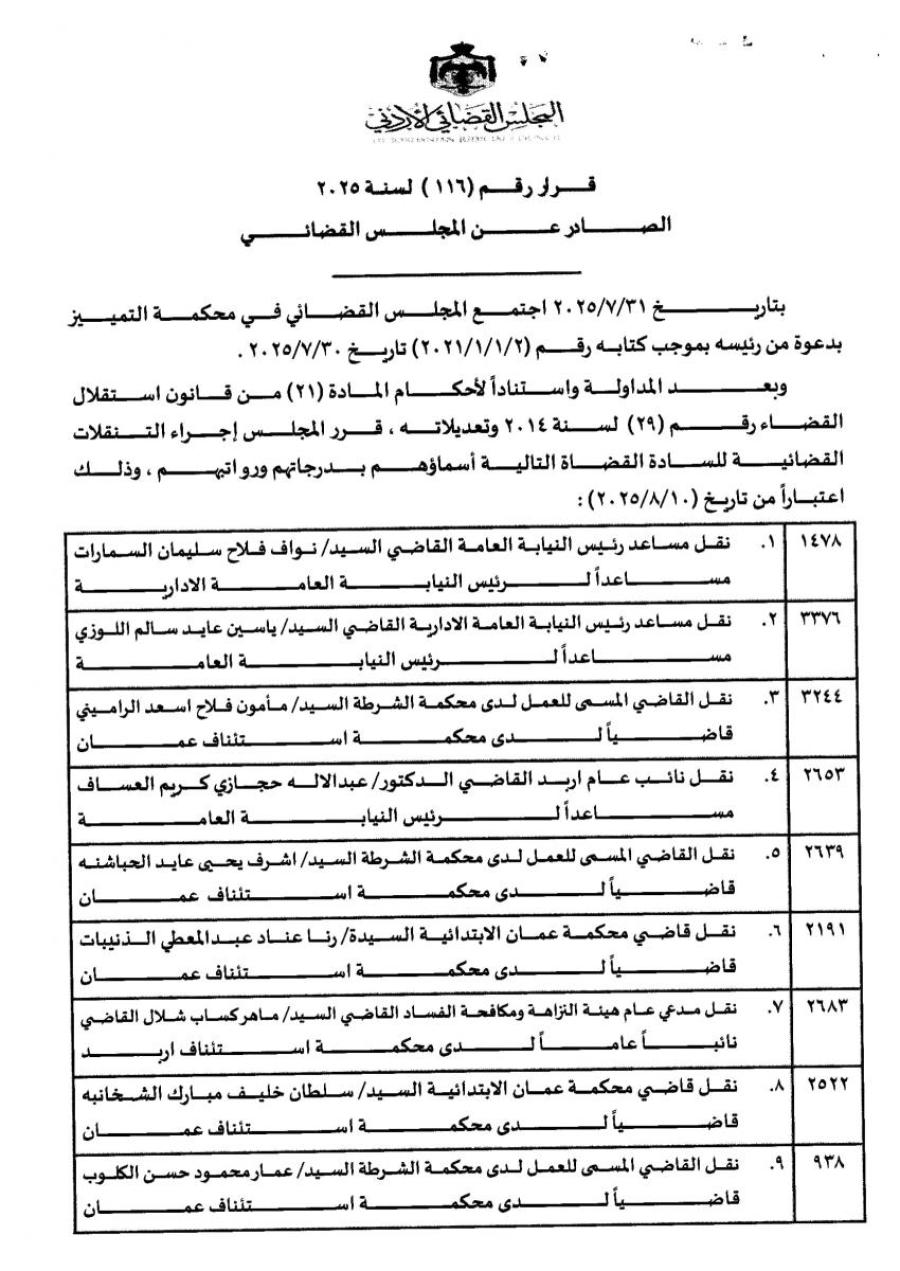 المجلس القضائي الأردني
قرار رقم (١١٦) لسنة ٢٠٢٥
الصادر عن المجلس القضائي
بتاريخ ٢٠٢٥/٧/٣١ اجتمع المجلس القضائي في محكمة التمييز
بدعوة من رئيسه بموجب كتابه رقم (٢٠٢١/١/١/٢) تاريخ ٢٠٢٥/٧/٣٠ .
وبعد المداولة واستناداً لأحكام المادة (٢١) من قانون استقلال
القضاء رقم (٢٩) لسنة ٢٠١٤ وتعديلاته ، قرر المجلس إجراء التنقلات
القضائية للسادة القضاة التالية أسماؤهم بدرجاتهم ورواتبهم ، وذلك
اعتباراً من تاريخ (٢٠٢٥/٨/١٠) :
١٤٧٨ ١. نقل مساعد رئيس النيابة العامة القاضي السيد/ نواف فلاح سليمان السمارات
مساعداً لرئيس النيابة العامة الادارية
٣٣٧٦ ٢. نقل مساعد رئيس النيابة العامة الادارية القاضي السيد/ ياسين عايد سالم اللوزي
مساعداً لرئيس النيابة العامة
٣٢٤٤ ٣. نقل القاضي المسمى للعمل لدى محكمة الشرطة السيد/ مأمون فلاح اسعد الراميني
قاضياً لدى محكمة استئناف عمان
٢٦٥٣ ٤. نقل نائب عام اربد القاضي الدكتور/ عبدالاله حجازي كريم العساف
مساعداً لرئيس النيابة العامة
٢٦٣٩ ٥. نقل القاضي المسمى للعمل لدى محكمة الشرطة السيد/ اشرف يحيى عايد الحباشنه
قاضياً لدى محكمة استئناف عمان
٢١٩١ ٦. نقل قاضي محكمة عمان الابتدائية السيدة/ رنا عناد عبدالمعطي الذنيبات
قاضياً لدى محكمة استئناف عمان
٢٦٨٣ ٧. نقل مدعي عام هيئة النزاهة ومكافحة الفساد القاضي السيد/ ماهر كساب شلال القاضي
نائباً عاماً لدى محكمة استئناف اربد
٢٥٢٢ ٨. نقل قاضي محكمة عمان الابتدائية السيد/ سلطان خليف مبارك الشخانبه
قاضياً لدى محكمة استئناف عمان
٩٣٨ ٩. نقل القاضي المسمى للعمل لدى محكمة الشرطة السيد/ عمار محمود حسن الكلوب
قاضياً لدى محكمة استئناف عمان